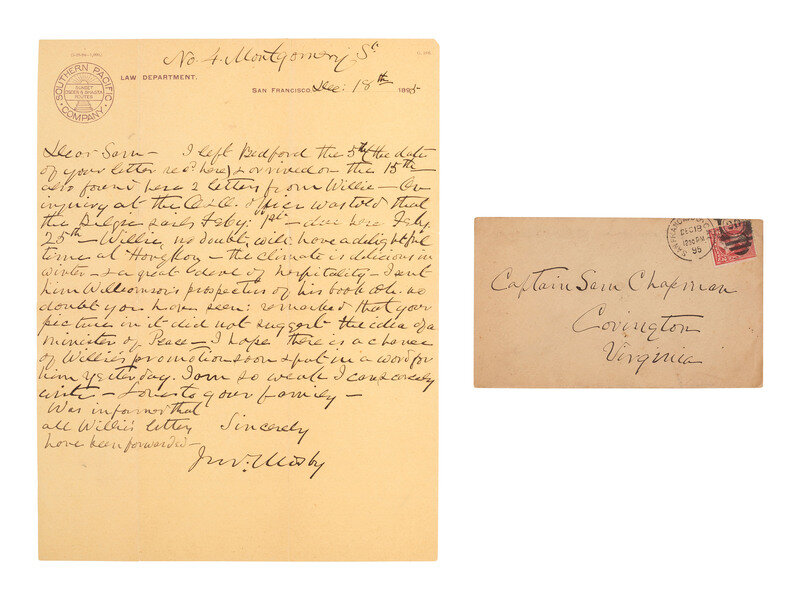 No. 4. Montgomery St
SOUTHERN PACIFIC COMPANY
SUNSET
OGDEN & SHASTA
ROUTES
LAW DEPARTMENT.
SAN FRANCISCO, Dec: 18th 1895
Dear Sam— I left Bedford the 5th (the date
of your letter recd. here) & arrived on the 15th
also found here 2 letters from Willie— On
inquiry at the O&O. office was told that
the Belgic sails Feby: 1st— due here Feby.
25th— Willie, no doubt, will have a delightful
time at HongKong— the climate is delicious in
winter— & a great deal of hospitality— I sent
him Williamson's prospectus of his book wh. no
doubt you have seen: remarked that your
picture in it did not suggest the idea of a
minister of Peace— I hope there is a chance
of Willie's promotion soon & put in a word for
him yesterday. I am so weak I can scarcely
write— Love to your family—
Was informed that
all Willie's letters Sincerely
have been forwarded—
Jno. S. Mosby
SAN FRANCISCO
DEC 19
12 30 PM
95
Captain Sam Chapman
Covington
Virginia